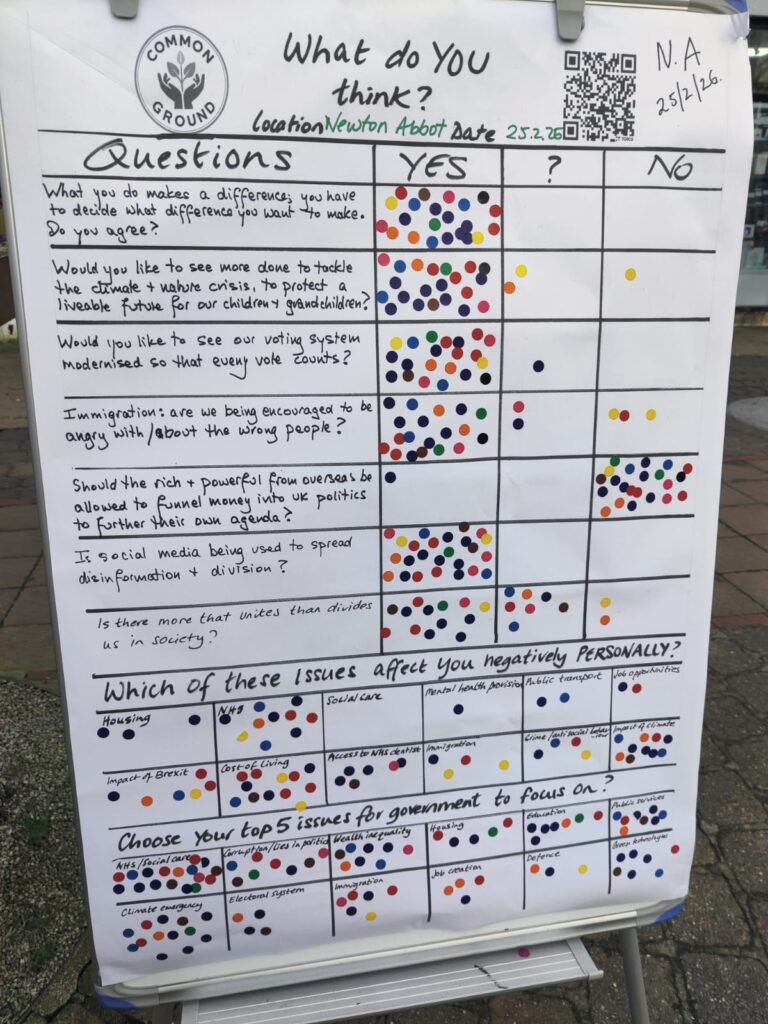 COMMON
GROUND
What do YOU
think?
N.A
25/2/26.
Location Newton Abbot Date 25.2.26
Questions YES ? NO
What you do makes a difference; you have
to decide what difference you want to make.
Do you agree?
Would you like to see more done to tackle
the climate + nature crisis, to protect a
liveable future for our children + grandchildren?
Would you like to see our voting system
modernised so that every vote counts?
Immigration: are we being encouraged to be
angry with/about the wrong people?
Should the rich + powerful from overseas be
allowed to funnel money into UK politics
to further their own agenda?
Is social media being used to spread
disinformation + division?
Is there more that unites than divides
us in society?
Which of these issues affect you negatively PERSONALLY?
Housing NHS Social care Mental health provision Public transport Job opportunities
Impact of Brexit Cost of Living Access to NHS dentist Immigration Crime/antisocial behav-
iour Impact of climate
Choose your top 5 issues for government to focus on?
NHS/Social care Corruption/lies in politics Wealth inequality Housing Education Public services
Climate emergency Electoral system Immigration Job creation Defence Green technologies